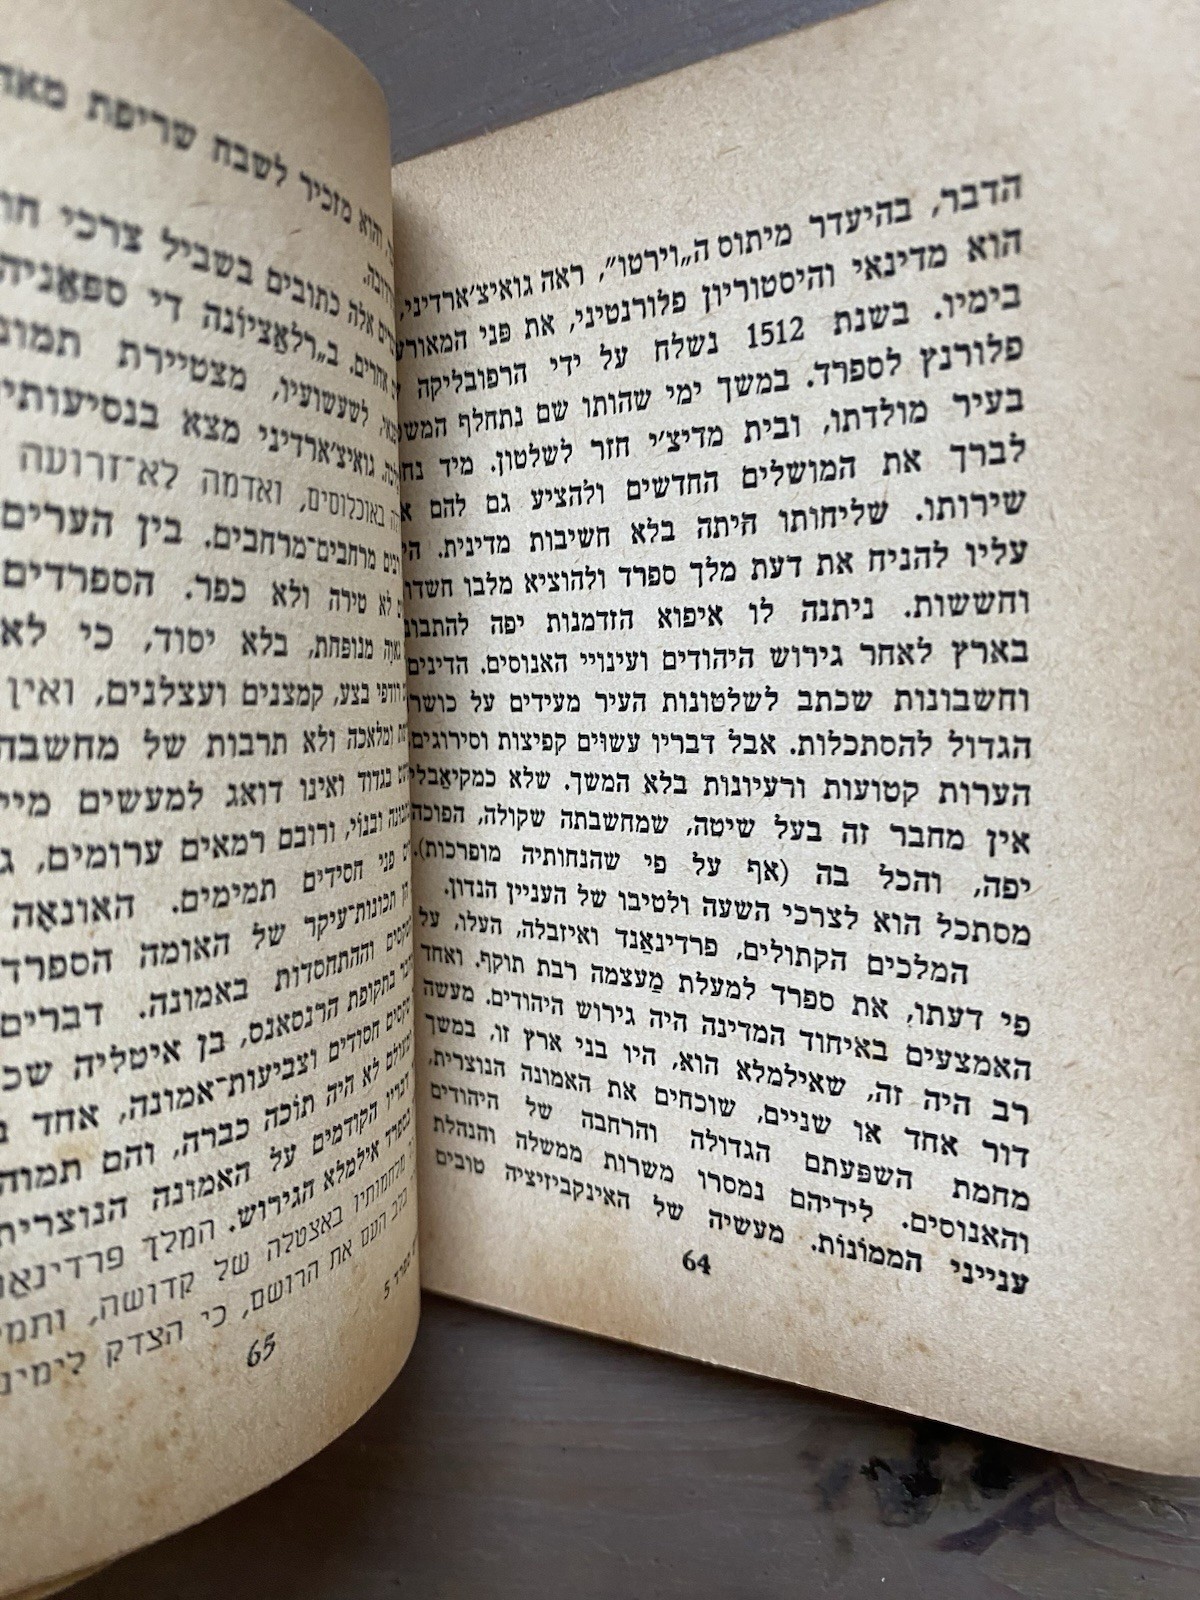 הדבר, בהיעדר מיתוס ה„וירטו”, ראה גואיצ׳ארדיני,
הוא מדינאי והיסטוריון פלורנטיני, את פני המאורע
בימיו. בשנת 1512 נשלח על ידי הרפובליקה
פלורנץ לספרד. במשך ימי שהותו שם נתחלף
בעיר מולדתו, ובית מדיצ׳י חזר לשלטון. מיד
לברך את המושלים החדשים ולהציע גם להם
שירותו. שליחותו היתה בלא חשיבות מדינית.
עליו להניח את דעת מלך ספרד ולהוציא מלבו
וחששות. ניתנה לו איפוא הזדמנות יפה
בארץ לאחר גירוש היהודים ועינויי האנוסים. הדינים
וחשבונות שכתב לשלטונות העיר מעידים על כושר
הגדול להסתכלות. אבל דבריו עשוים קפיצות וסירוגים
הערות קטועות ורעיונות בלא המשך. שלא
אין מחבר זה בעל שיטה, שמחשבתה שקולה, הפוכה
יפה, והכל בה (אף על פי שהנחותיה מופרכות).
מסתכל הוא לצרכי השעה ולטיבו של העניין הנדון.
המלכים הקתולים, פרדינאַנד ואיזבלה, העלו, על
פי דעתו, את ספרד למעלת מַעצמה רבת תוקף. ואחד
האמצעים באיחוד המדינה היה גירוש היהודים. מעשה
רב היה זה, שאילמלא הוא, היו בני ארץ זו, במשך
דור אחד או שניים, שוכחים את האמונה הנוצרית,
מחמת השפעתם הגדולה והרחבה של היהודים
והאנוסים. לידיהם נמסרו משרות ממשלה והנהלת
ענייני הממוֹנוֹת. מעשיה של האינקביזיציה טובים
64
והוא מזכיר לשבח שריפת
אלה כתובים בשביל צרכי
אחרים. ב„רלאַציוֹנה די ספּאַניה
לשעשועיו, מצטיירת
גואיצ׳ארדיני מצא
באוכלוסים, ואדמה לא־זרועה
מרחבים־מרחבים. בין הערים
לא טירה ולא כפר. הספרדים
מנופחת, בלא יסוד, כי
רודפי בצע, קמצנים ועצלנים, ואין
ומלאכה ולא תרבות של
בגדוד ואינו דואג למעשים
ובנוֹי, ורובם רמאים ערומים,
פני חסידים תמימים. האונאָה
הן תכונות־עיקר של האומה
וההתחסדות באמונה. דברים
בתקופת הרנסאנס, בן איטליה
חסודים וצביעות־אמונה, אחד
לא היה תוֹכה כברה, והם
דבריו הקודמים על האמונה
בספרד אילמלא הגירוש. המלך
מלחמותיו באצטלה של קדושה,
העם את הרושם, כי הצדק
5
65